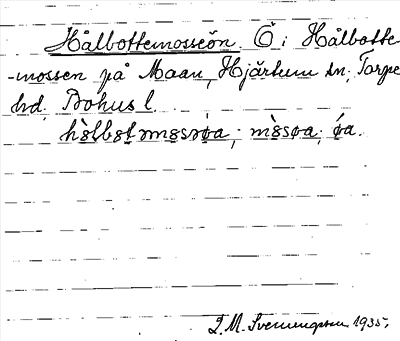 Hålbottemosseön. Ö i Hålbotte-
-mossen på Maan, Hjärtum sn, Torpe
hd, Bohusl.
hòlbot mossøa; mòsøa; øa.
Svenungsson 1935.